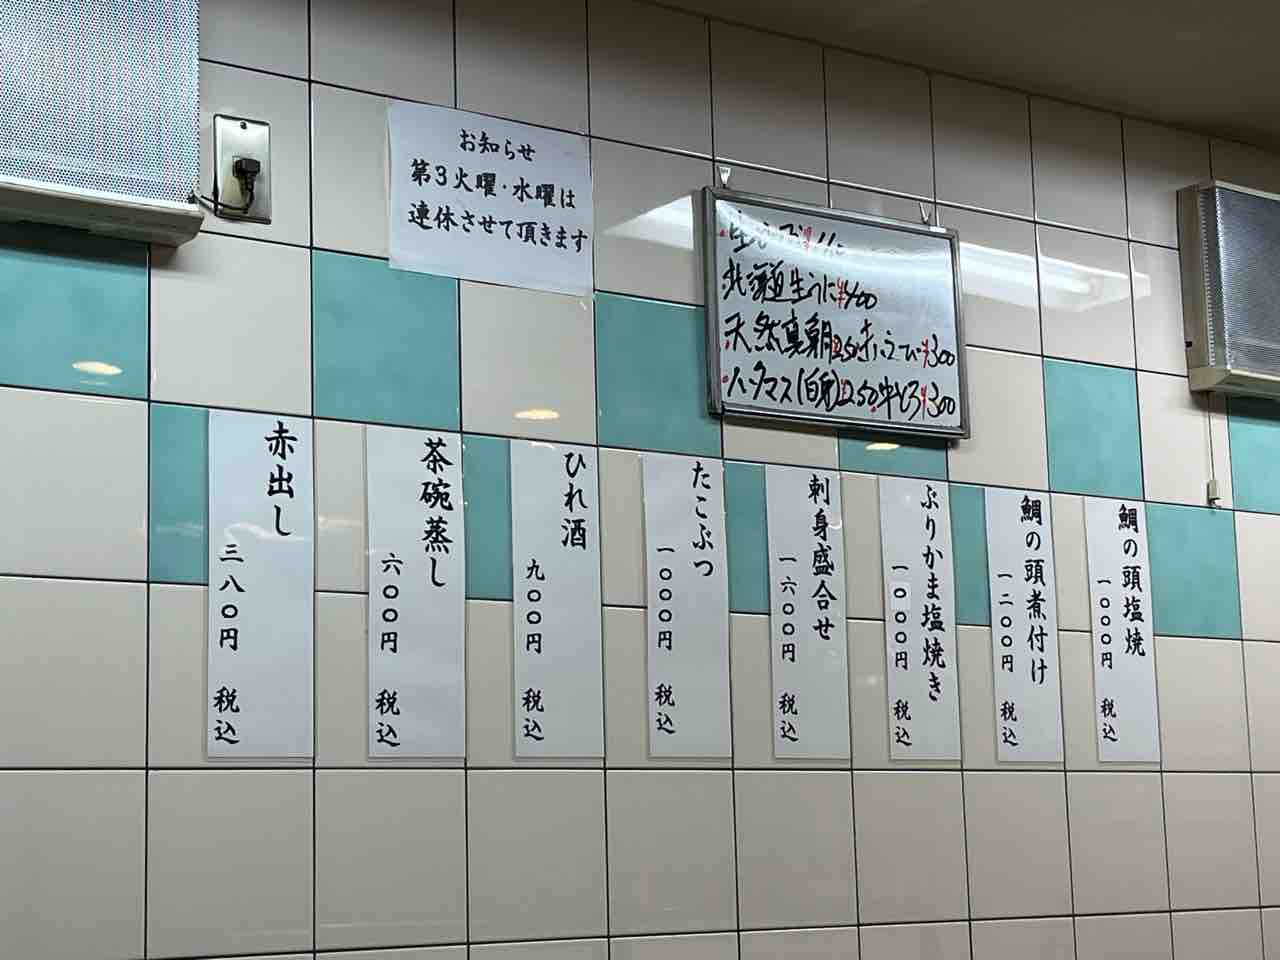 お知らせ
第3火曜・水曜は
連休させて頂きます
北海道生うに
天然真鯛 250 赤えび ¥300
中とろ ¥300
鯛の頭塩焼
一〇〇〇円 税込
鯛の頭煮付け
一二〇〇円 税込
ぶりかま塩焼き
一〇〇〇円 税込
刺身盛合せ
一六〇〇円 税込
たこぶつ
一〇〇〇円 税込
ひれ酒
九〇〇円 税込
茶碗蒸し
六〇〇円 税込
赤出し
三八〇円 税込